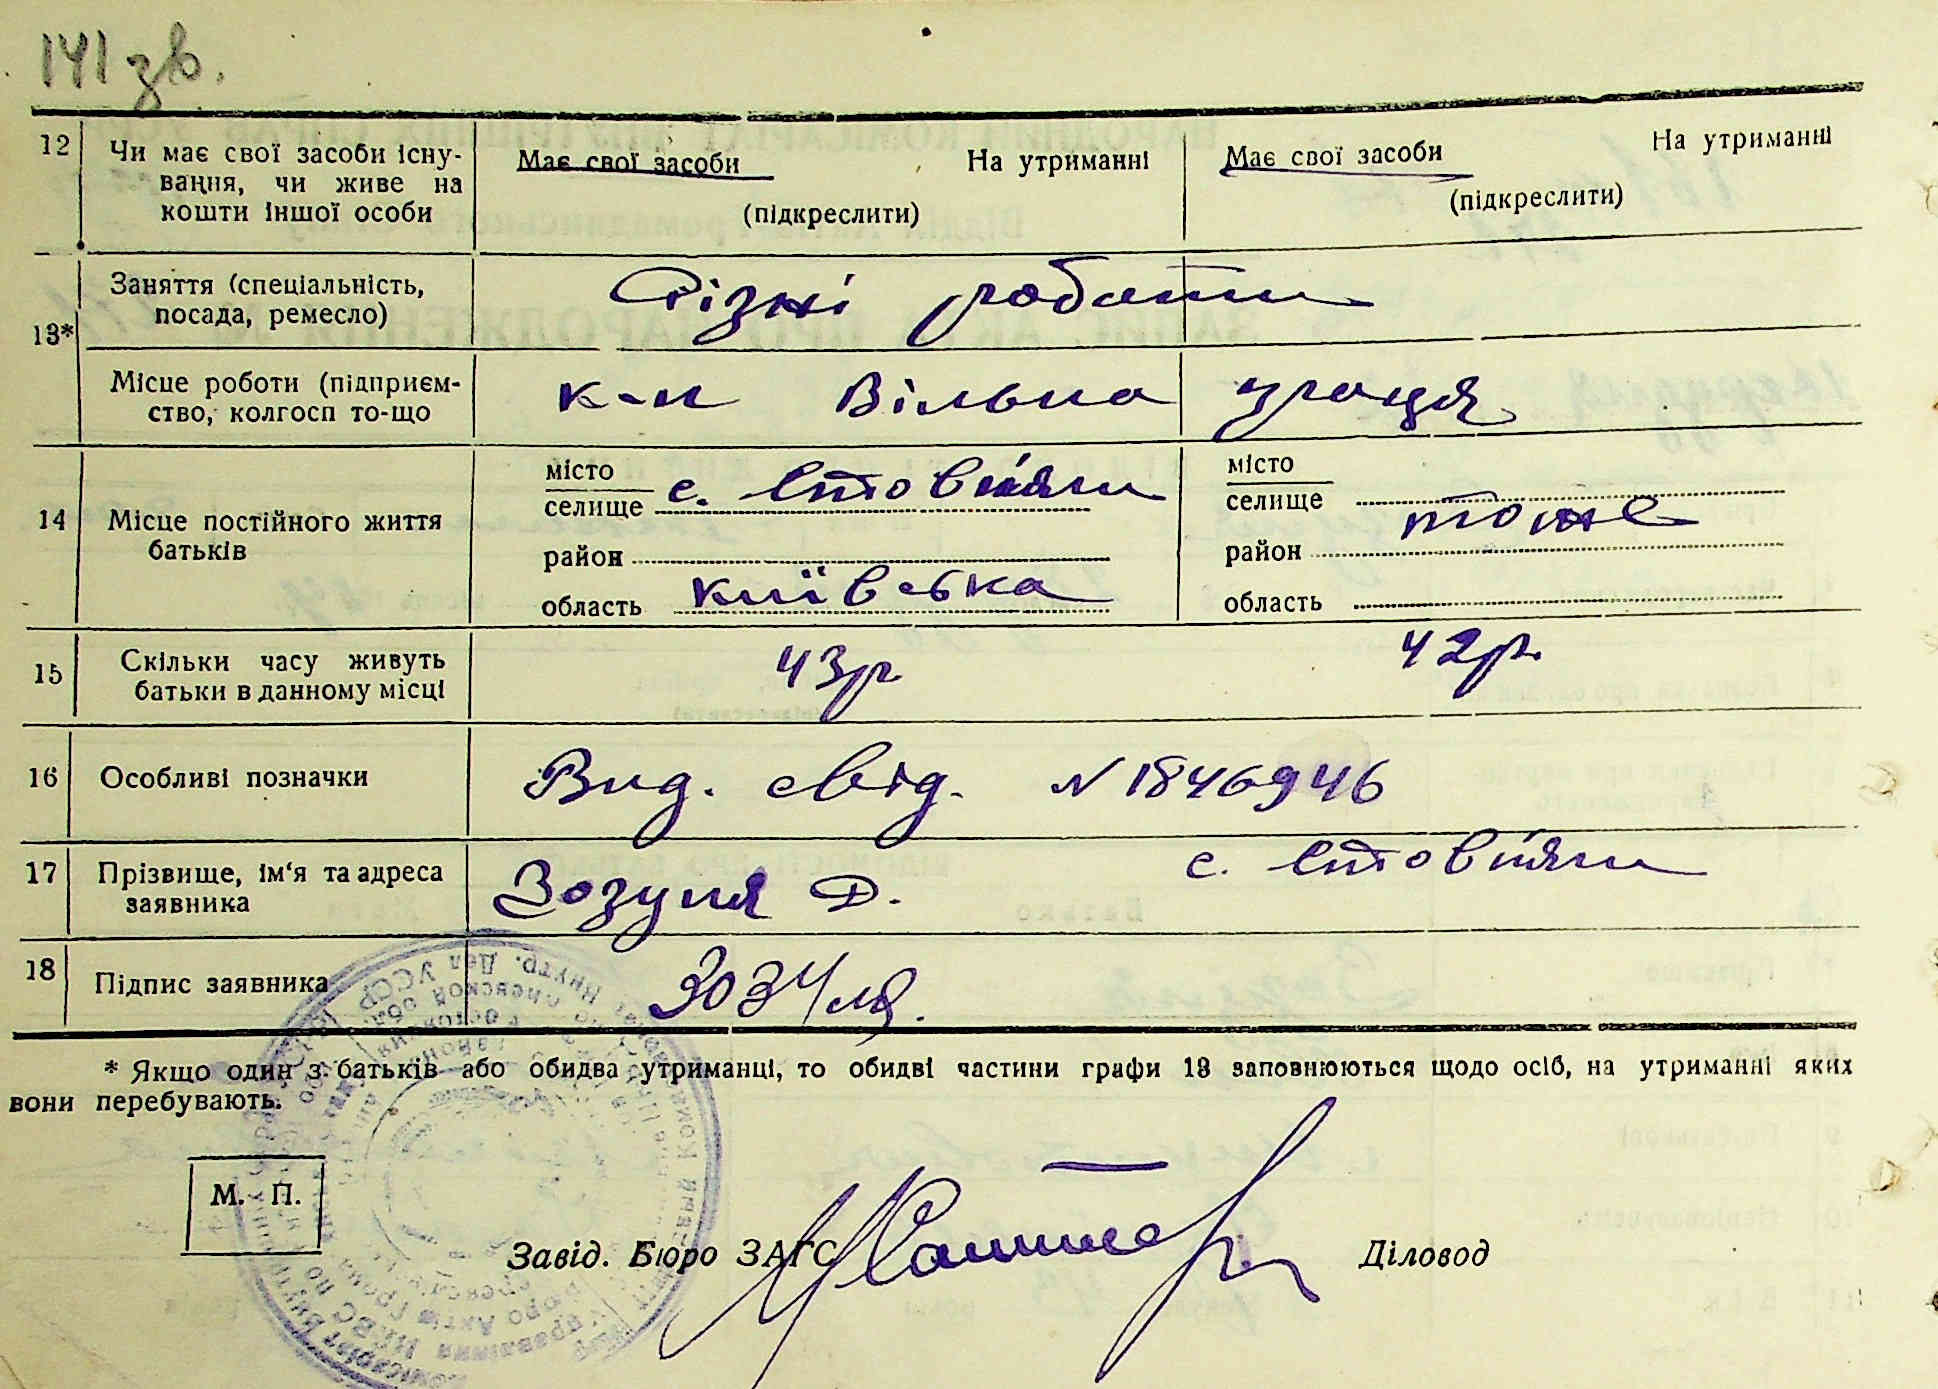 141 зв.
12 Чи має свої засоби існу- Має свої засоби На утриманні Має свої засоби На утриманні
вання, чи живе на
кошти іншої особи (підкреслити) (підкреслити)
13* Заняття (спеціальність, Різні роботи
посада, ремесло)
Місце роботи (підприєм- к-п Вільна праця
ство, колгосп то-що
14 Місце постійного життя батьків
місто
селище с. Стовп'яги
район
область Київська
місто
селище
тоже
район
область
15 Скільки часу живуть 43р 42р.
батьки в данному місці
16 Особливі позначки Вид. свід. N 1846946
17 Прізвище, ім'я та адреса Зозуля Д. с. Стовп'яги
заявника
18 Підпис заявника Зозуля.
* Якщо один з батьків або обидва утриманці, то обидві частини графи 13 заповнюються щодо осіб, на утриманні яких
вони перебувають.
М. П.
Завід. Бюро ЗАГС Діловод